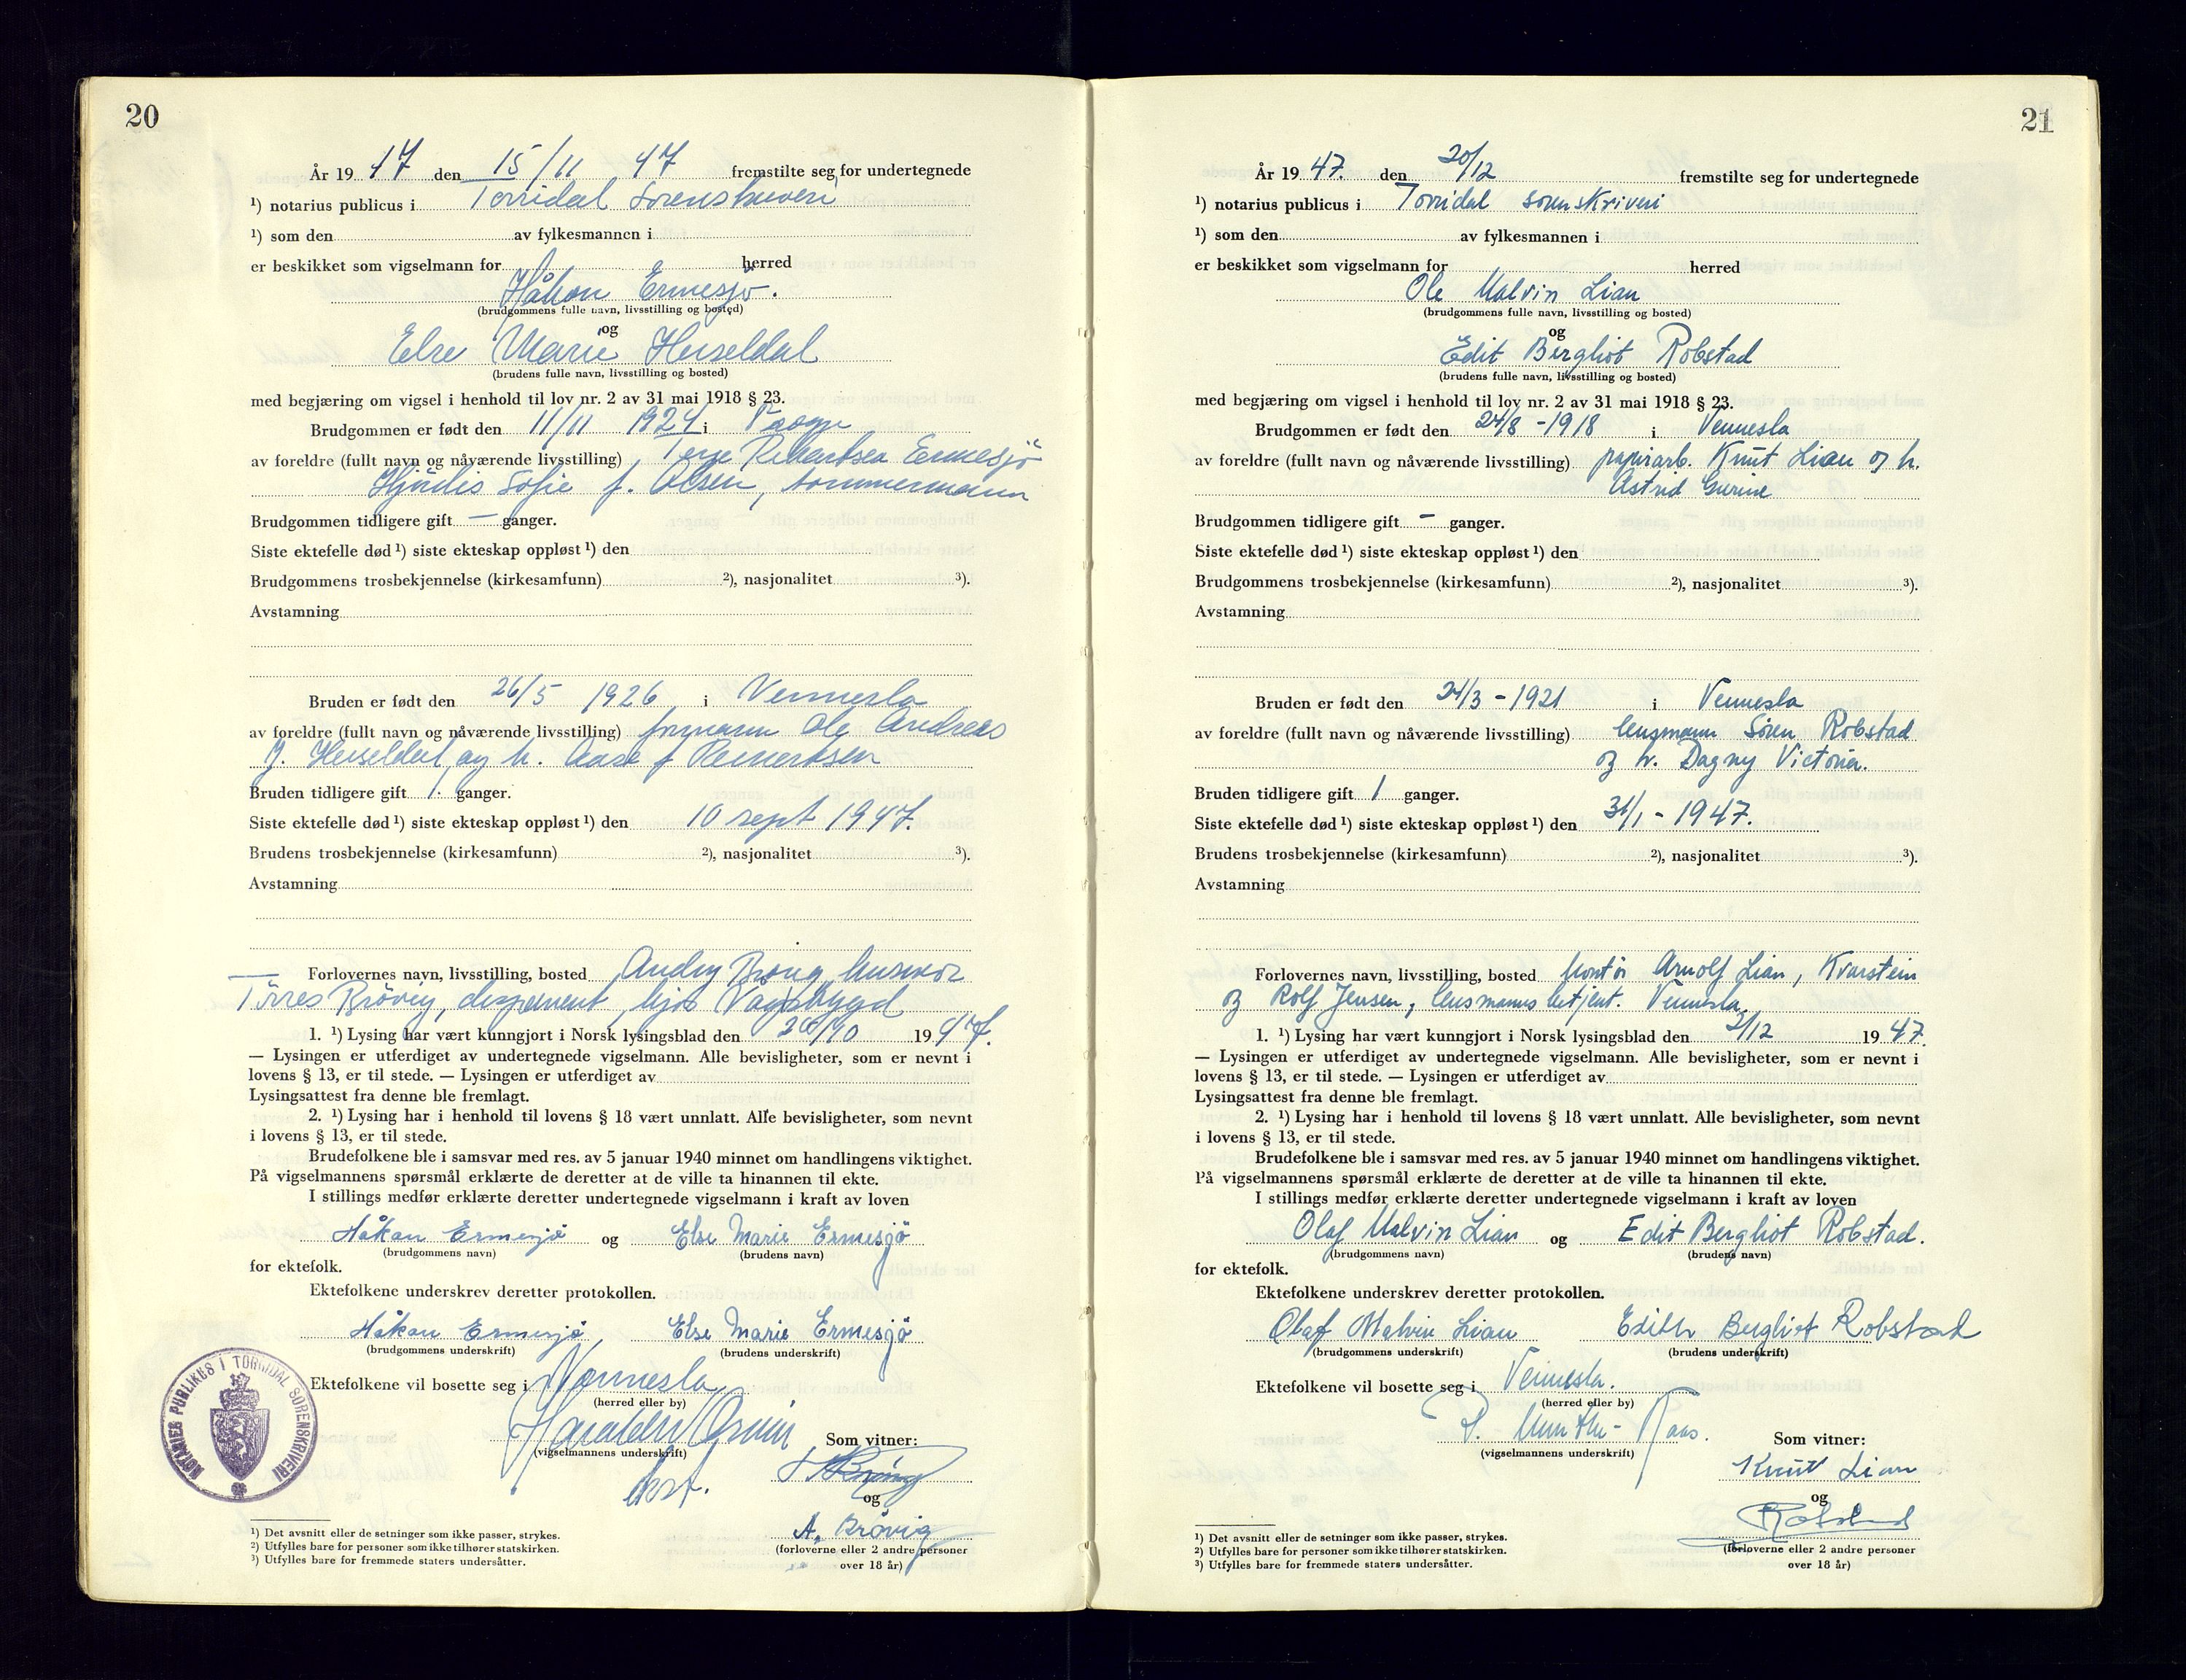 20
År 19 47 den 15/11 47 fremstilte seg for undertegnede
¹) notarius publicus i Torridal Sorenskriveri
¹) som den av fylkesmannen i
er beskikket som vigselmann for herred
Håkon Ermesjö.
(brudgommens fulle navn, livsstilling og bosted)
og
Else Marie Heiseldal
(brudens fulle navn, livsstilling og bosted)
med begjæring om vigsel i henhold til lov nr. 2 av 31 mai 1918 § 23.
Brudgommen er født den 11/11 1924 i
av foreldre (fullt navn og nåværende livsstilling) Terje Ermesjö
Hjördis Sofie f. Olsen, tömmermann
Brudgommen tidligere gift — ganger.
Siste ektefelle død ¹) siste ekteskap oppløst ¹) den
Brudgommens trosbekjennelse (kirkesamfunn) ²), nasjonalitet ³).
Avstamning
Bruden er født den 26/5 1926 i Vennesla
av foreldre (fullt navn og nåværende livsstilling) formann Ole Andreas
J. Heiseldal og h. Aase f Reinertsen
Bruden tidligere gift 1. ganger.
Siste ektefelle død ¹) siste ekteskap oppløst ¹) den 10 sept 1947.
Brudens trosbekjennelse (kirkesamfunn) ²), nasjonalitet ³).
Avstamning
Forlovernes navn, livsstilling, bosted Brövig husmor
Törres Brövig, disponent, Vågsbygd
1. ¹) Lysing har vært kunngjort i Norsk lysingsblad den 20/10 19 47.
— Lysingen er utferdiget av undertegnede vigselmann. Alle bevisligheter, som er nevnt i
lovens § 13, er til stede. — Lysingen er utferdiget av
Lysingsattest fra denne ble fremlagt.
2. ¹) Lysing har i henhold til lovens § 18 vært unnlatt. Alle bevisligheter, som nevnt
i lovens § 13, er til stede.
Brudefolkene ble i samsvar med res. av 5 januar 1940 minnet om handlingens viktighet.
På vigselmannens spørsmål erklærte de deretter at de ville ta hinannen til ekte.
I stillings medfør erklærte deretter undertegnede vigselmann i kraft av loven
Håkon Ermesjö og Else Marie Ermesjö
(brudgommens navn) (brudens navn)
for ektefolk.
Ektefolkene underskrev deretter protokollen.
Håkon Ermesjö, Else Marie Ermesjö
(brudgommens underskrift) (brudens underskrift)
Ektefolkene vil bosette seg i Vennesla
(herred eller by)
(vigselmannens underskrift)
Som vitner:
og
A. Brövig
(forloverne eller 2 andre personer
over 18 år)
NOTARIUS PUBLICUS I TORRIDAL SORENSKRIVERI
¹) Det avsnitt eller de setninger som ikke passer, strykes.
²) Utfylles bare for personer som ikke tilhører statskirken.
³) Utfylles bare for fremmede staters undersåtter.
21
År 19 47. den 20/12 fremstilte seg for undertegnede
¹) notarius publicus i Torridal sorenskriveri
¹) som den av fylkesmannen i
er beskikket som vigselmann for herred
Ole Malvin Lian
(brudgommens fulle navn, livsstilling og bosted)
og
Edit Bergliot Robstad
(brudens fulle navn, livsstilling og bosted)
med begjæring om vigsel i henhold til lov nr. 2 av 31 mai 1918 § 23.
Brudgommen er født den 24/8 - 1918 i Vennesla
av foreldre (fullt navn og nåværende livsstilling) papirarb. Knut Lian og h.
Astrid Gurine
Brudgommen tidligere gift - ganger.
Siste ektefelle død ¹) siste ekteskap oppløst ¹) den
Brudgommens trosbekjennelse (kirkesamfunn) ²), nasjonalitet ³).
Avstamning
Bruden er født den 24/3 - 1921 i Vennesla
av foreldre (fullt navn og nåværende livsstilling) lensmann Sören Robstad
og h. Dagny Victoria.
Bruden tidligere gift 1 ganger.
Siste ektefelle død ¹) siste ekteskap oppløst ¹) den 31/1 - 1947.
Brudens trosbekjennelse (kirkesamfunn) ²), nasjonalitet ³).
Avstamning
Forlovernes navn, livsstilling, bosted Montör Arnolf Lian, Kvarstein
og Rolf Jensen, lensmannsbetjent. Vennesla
1. ¹) Lysing har vært kunngjort i Norsk lysingsblad den 2/12 19 47.
— Lysingen er utferdiget av undertegnede vigselmann. Alle bevisligheter, som er nevnt i
lovens § 13, er til stede. — Lysingen er utferdiget av
Lysingsattest fra denne ble fremlagt.
2. ¹) Lysing har i henhold til lovens § 18 vært unnlatt. Alle bevisligheter, som nevnt
i lovens § 13, er til stede.
Brudefolkene ble i samsvar med res. av 5 januar 1940 minnet om handlingens viktighet.
På vigselmannens spørsmål erklærte de deretter at de ville ta hinannen til ekte.
I stillings medfør erklærte deretter undertegnede vigselmann i kraft av loven
Olaf Malvin Lian og Edit Bergliot Robstad.
(brudgommens navn) (brudens navn)
for ektefolk.
Ektefolkene underskrev deretter protokollen.
Olaf Malvin Lian Edith Bergliot Robstad
(brudgommens underskrift) (brudens underskrift)
Ektefolkene vil bosette seg i Vennesla.
(herred eller by)
P. Munthe-Kaas.
(vigselmannens underskrift)
Som vitner:
Knut Lian
og
Robstad
(forloverne eller 2 andre personer
over 18 år)
¹) Det avsnitt eller de setninger som ikke passer, strykes.
²) Utfylles bare for personer som ikke tilhører statskirken.
³) Utfylles bare for fremmede staters undersåtter.